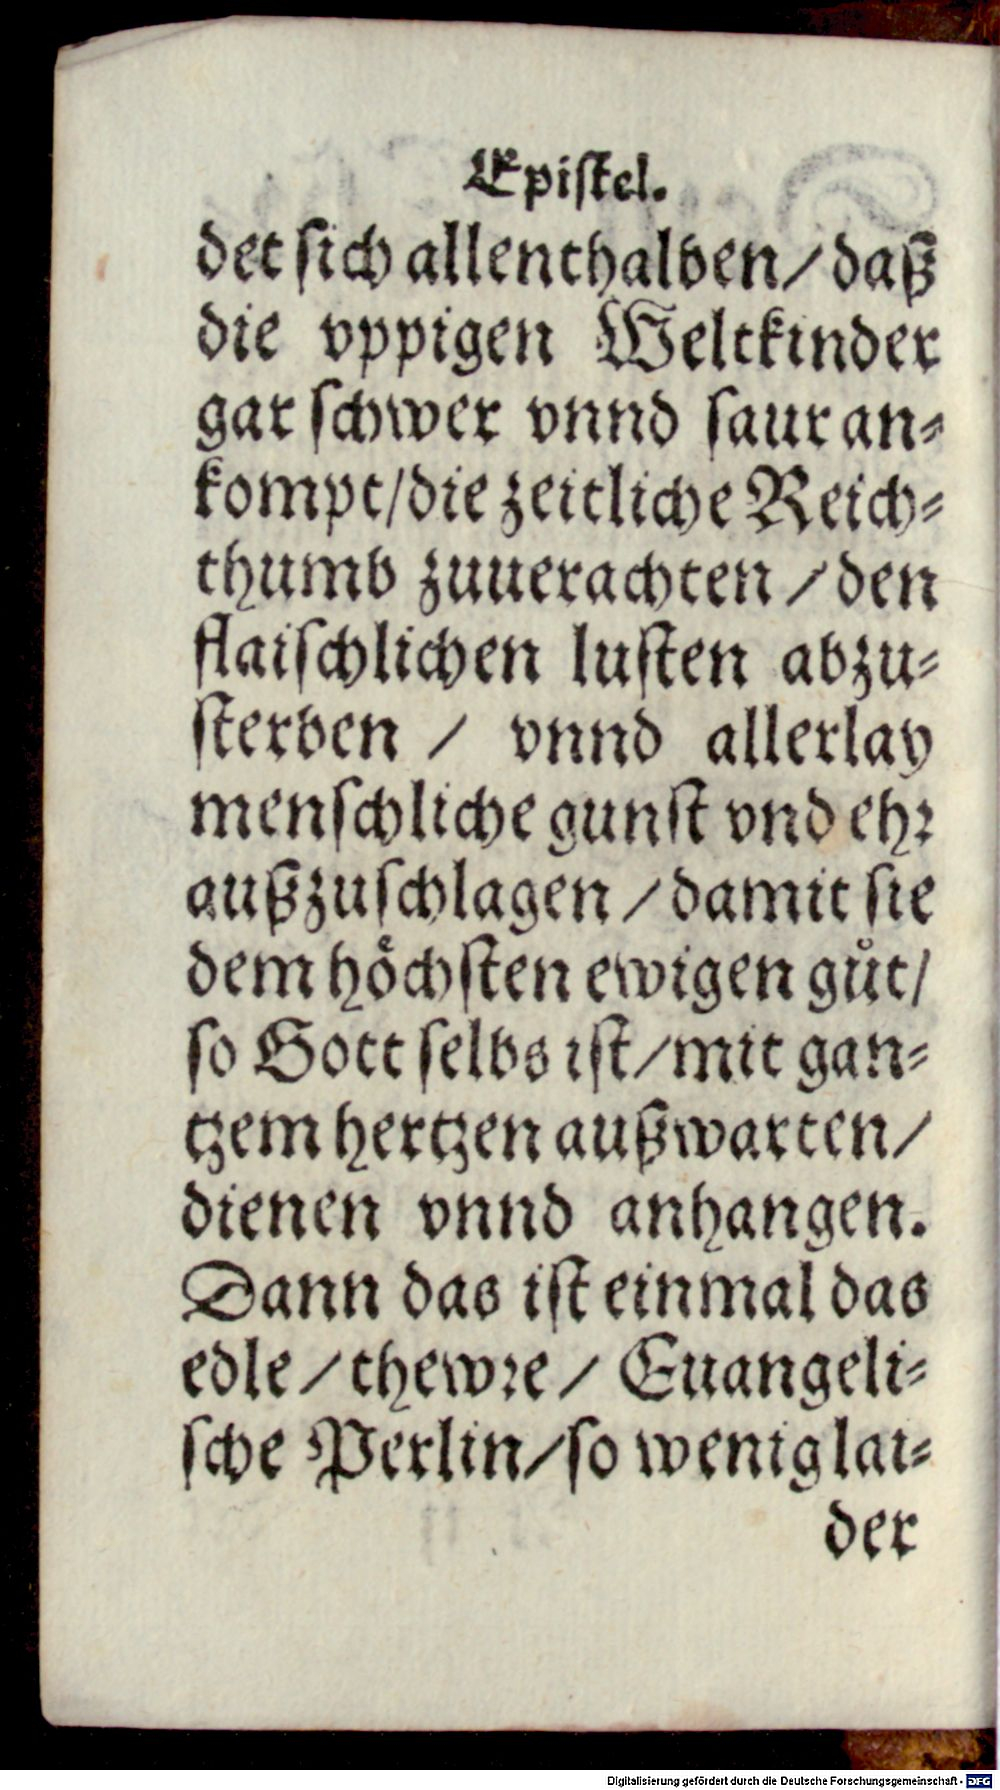 Epistel.
det sich allenthalben / daß
die vppigen Weltkinder
gar schwer vnnd saur an-
kompt / die zeitliche Reich-
thumb zuuerachten / den
flaischlichen lusten abzu-
sterben / vnnd allerlay
menschliche gunst vnd ehr
außzuschlagen / damit sie
dem höchsten ewigen gůt /
so Gott selbs ist / mit gan-
tzem hertzen außwarten /
dienen vnnd anhangen.
Dann das ist einmal das
edle / thewre / Euangeli-
sche Perlin / so wenig lai-
der
Digitalisierung gefördert durch die Deutsche Forschungsgemeinschaft - DFG